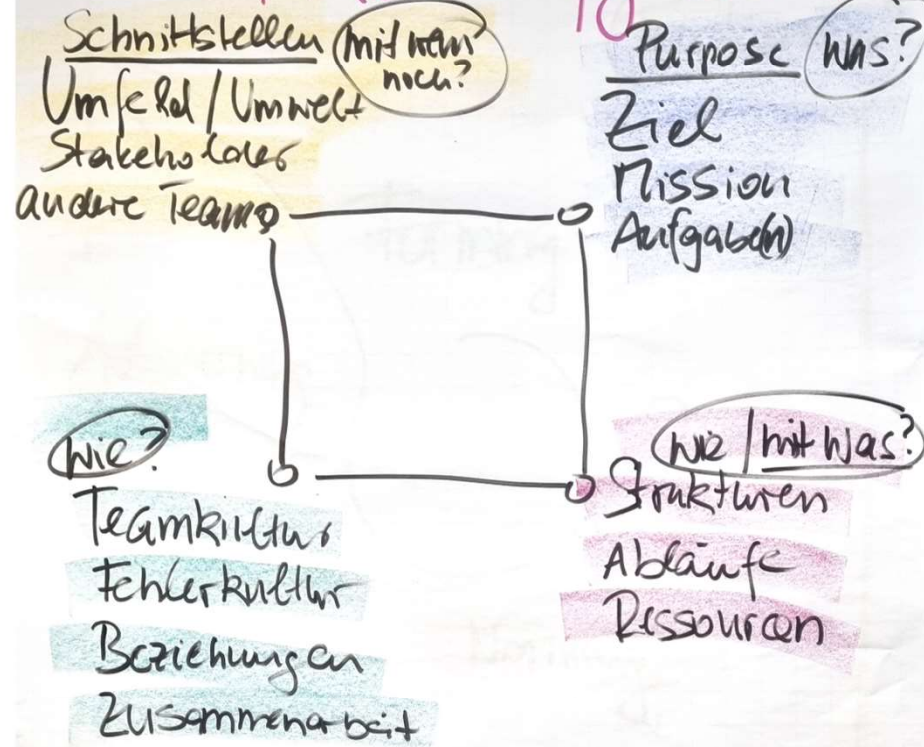 Schnittstellen
mit wem
noch?
Umfeld / Umwelt
Stakeholder
andere Teams
Purpose
Was?
Ziel
Mission
Aufgabe(n)
Wie?
Teamkultur
Fehlerkultur
Beziehungen
Zusammenarbeit
Wie / mit Was?
Strukturen
Abläufe
Ressourcen